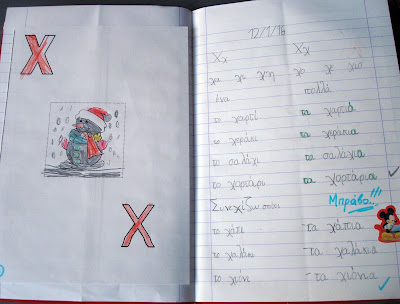 X
X
12/1/16
Χχ Χχ
χα χε χη χο χυ χιο
ένα πολλά
το χαρτί τα χαρτιά
το χεράκι τα χεράκια
το σαλάχι τα σαλάχια
το χαρτάρι τα χαρτάρια
Συνεχίζω Μπράβο!!!
το χάπι - τα χάπια
το χαλάκι - τα χαλάκια
το χιόνι - τα χιόνια